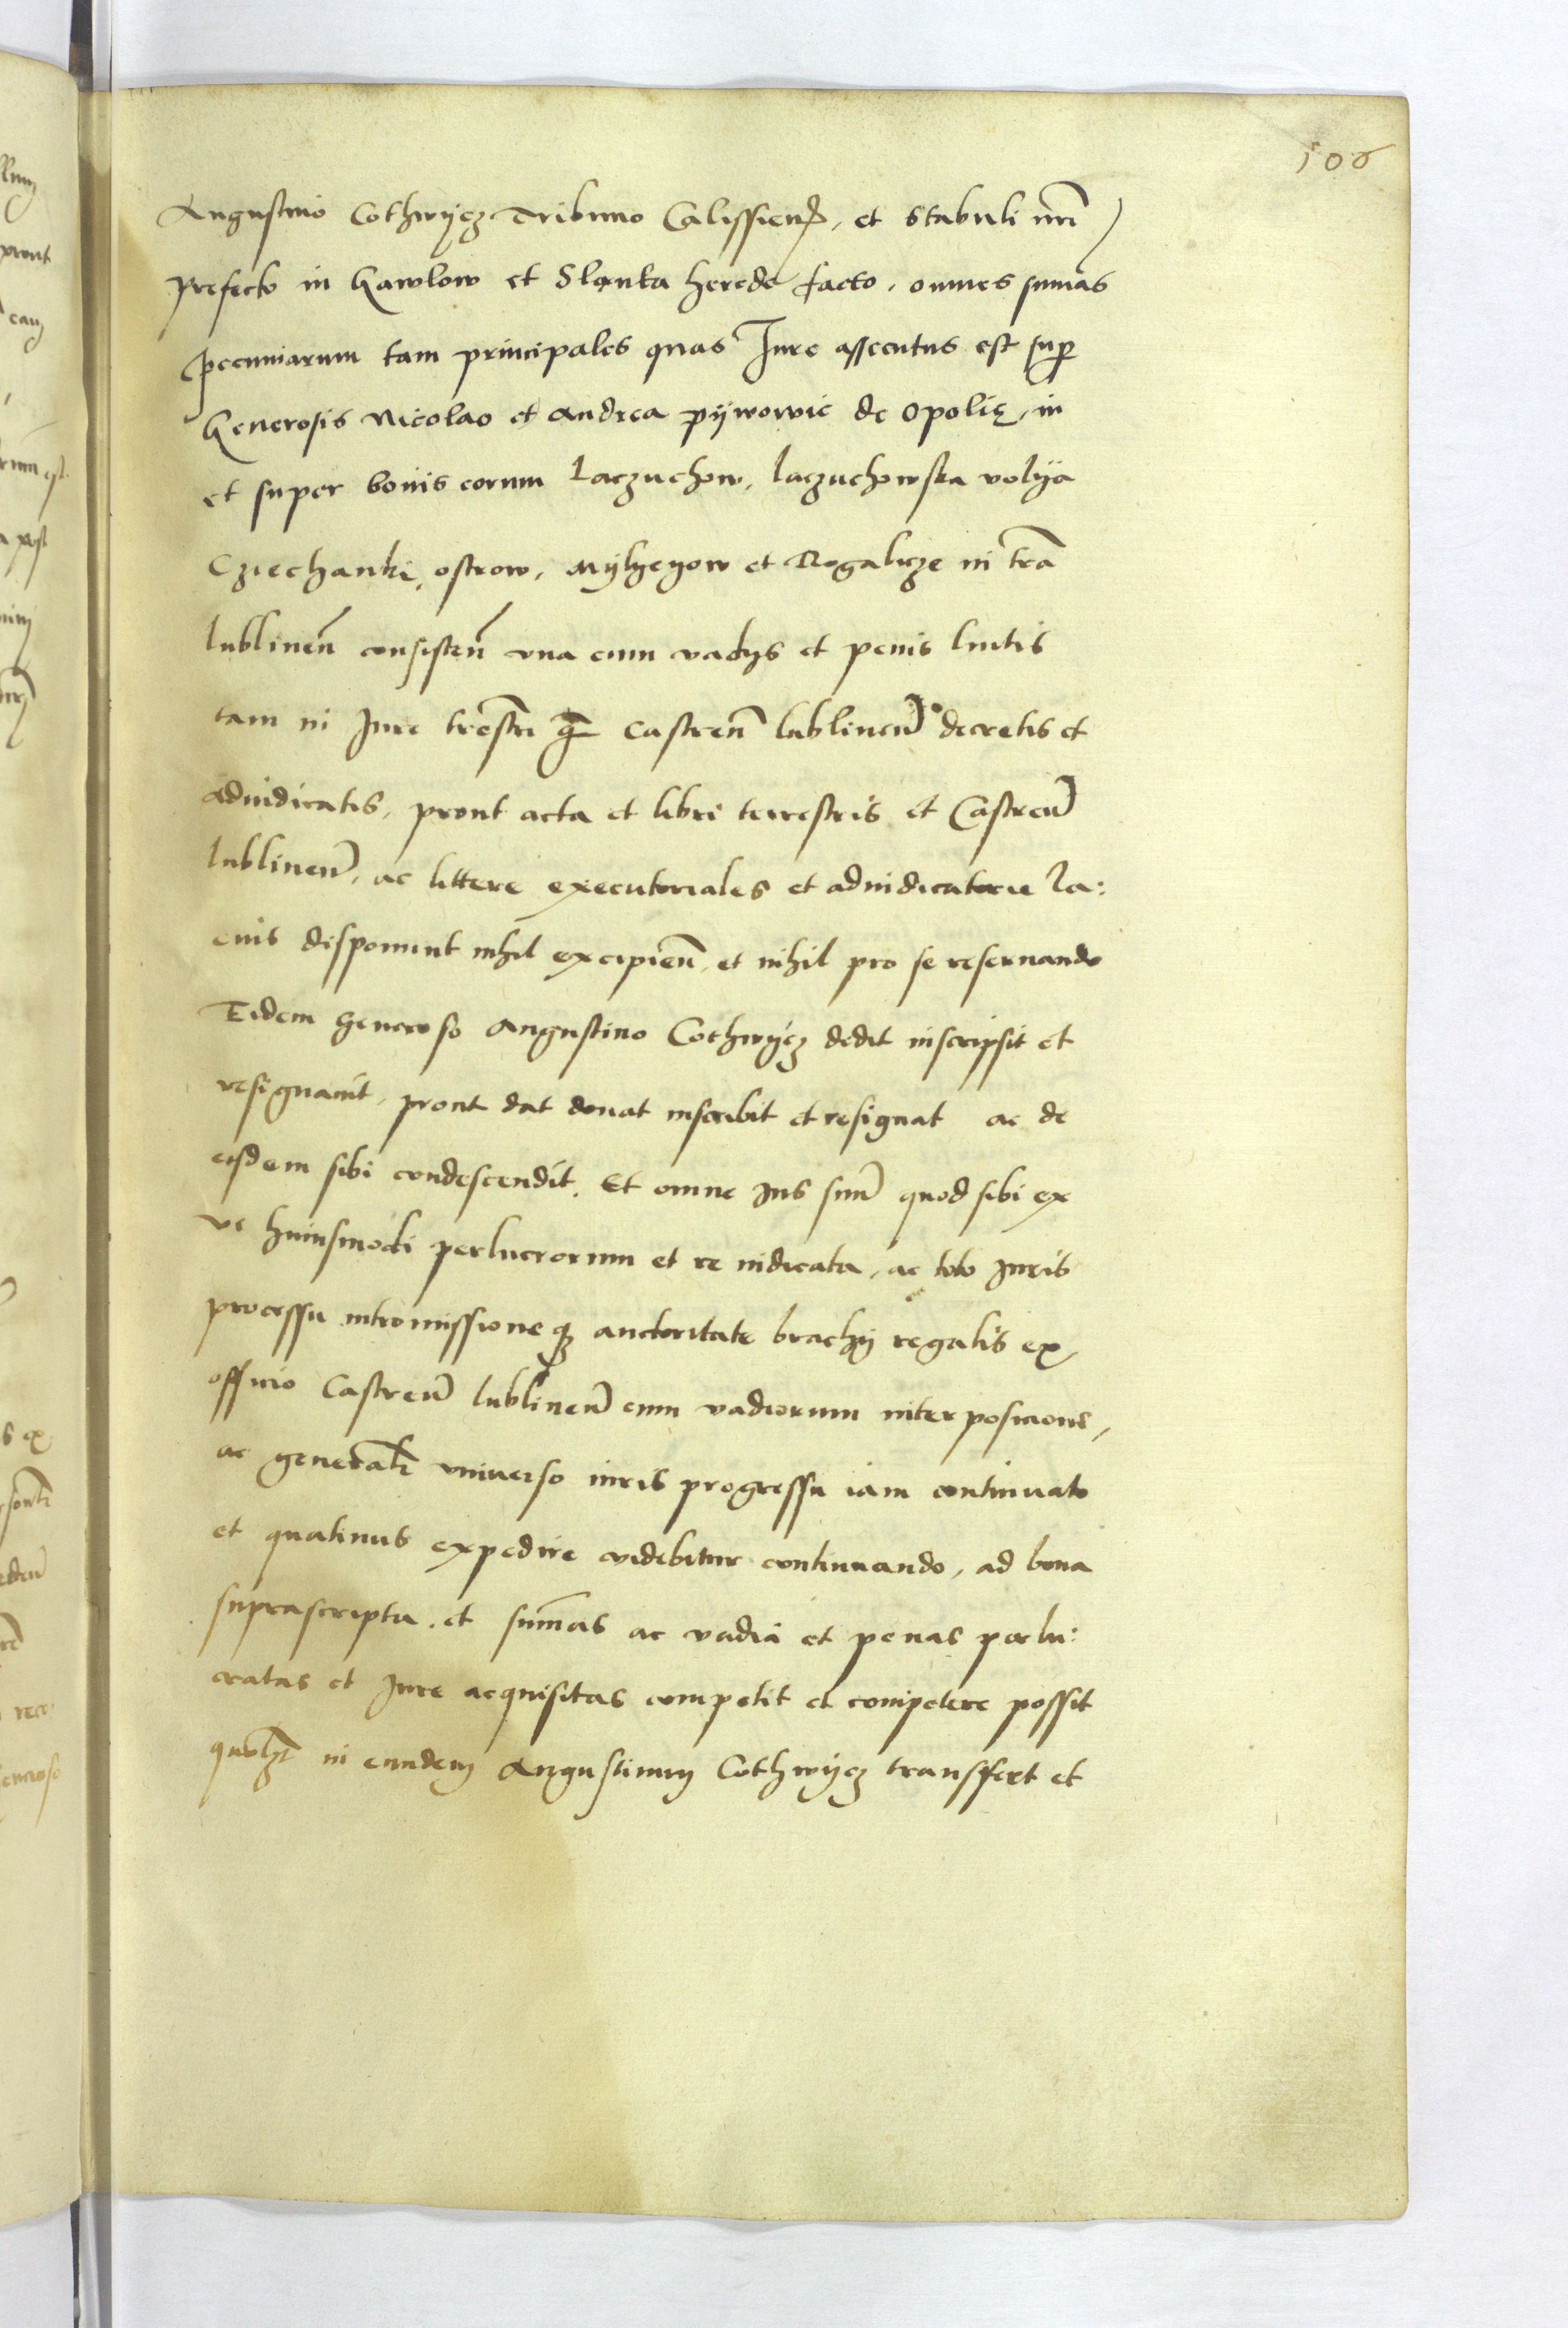 106
Augustino Cothwycz Tribuno Calissien̄, et stabuli nr̄i
prefecto in Gawlow et Slanka herede facto, omnes sum̄as
pecuniarum tam principales quas Jure assecutus est sup̱
Generosis Nicolao et Andrea pywowic de Opolię, in
et super bonis eorum Laczuchow, laczuchowska volya
Cziechanki, ostrow, Mylyeyow et Rogalicze in tr̄a
lublinen̄ consisten̄ vna cum vadys et penis luitis
tam in Jure trēstri q̄ castren̄ lublinen̄ decretis et
adiudicatis, prout acta et libri terrestris et Castren̄
lublinen̄, ac littere executoriales et adiudicatorie la:
cius disponunt nihil excipien̄, et nihil pro se reseruando
Eidem generoso Augustino Cothwycz dedit inscripsit et
resignauit, prout dat donat inscribit et resignat ac de
eisdem sibi condescendit. Et omne Jus suu̅ quod sibi ex
re huiusmodi perlucrorum et re iudicata, ac toto Juris
processu intromissione qȝ auctoritate brachy regalis ex
officio Castren̄ lublinen̄ cum vadiorum interposicione,
ac generalr̄ vniuerso iuris progressu iam continuato
et quatinus expedire videbitur continuando, ad bona
suprascripta, et sum̄as ac vadia et penas perlu:
cratas et Jure acquisitas competit et competere possit
quōlȝt in eundem Augustinum Cothwycz transfert et